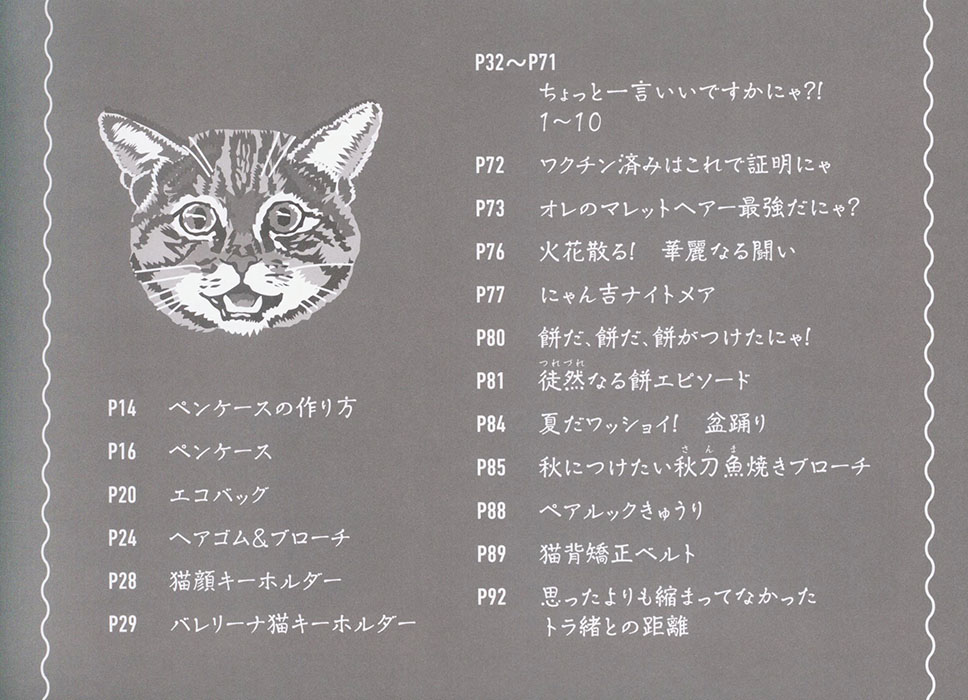 P14 ペンケースの作り方
P16 ペンケース
P20 エコバッグ
P24 ヘアゴム&ブローチ
P28 猫顔キーホルダー
P29 バレリーナ猫キーホルダー
P32～P71
ちょっと一言いいですかにゃ?!
1～10
P72 ワクチン済みはこれで証明にゃ
P73 オレのマレットヘアー最強だにゃ?
P76 火花散る! 華麗なる闘い
P77 にゃん吉ナイトメア
P80 餅だ、餅だ、餅がつけたにゃ!
つれづれ
P81 徒然なる餅エピソード
P84 夏だワッショイ! 盆踊り
さんま
P85 秋につけたい秋刀魚焼きブローチ
P88 ペアルックきゅうり
P89 猫背矯正ベルト
P92 思ったよりも縮まってなかった
トラ緒との距離